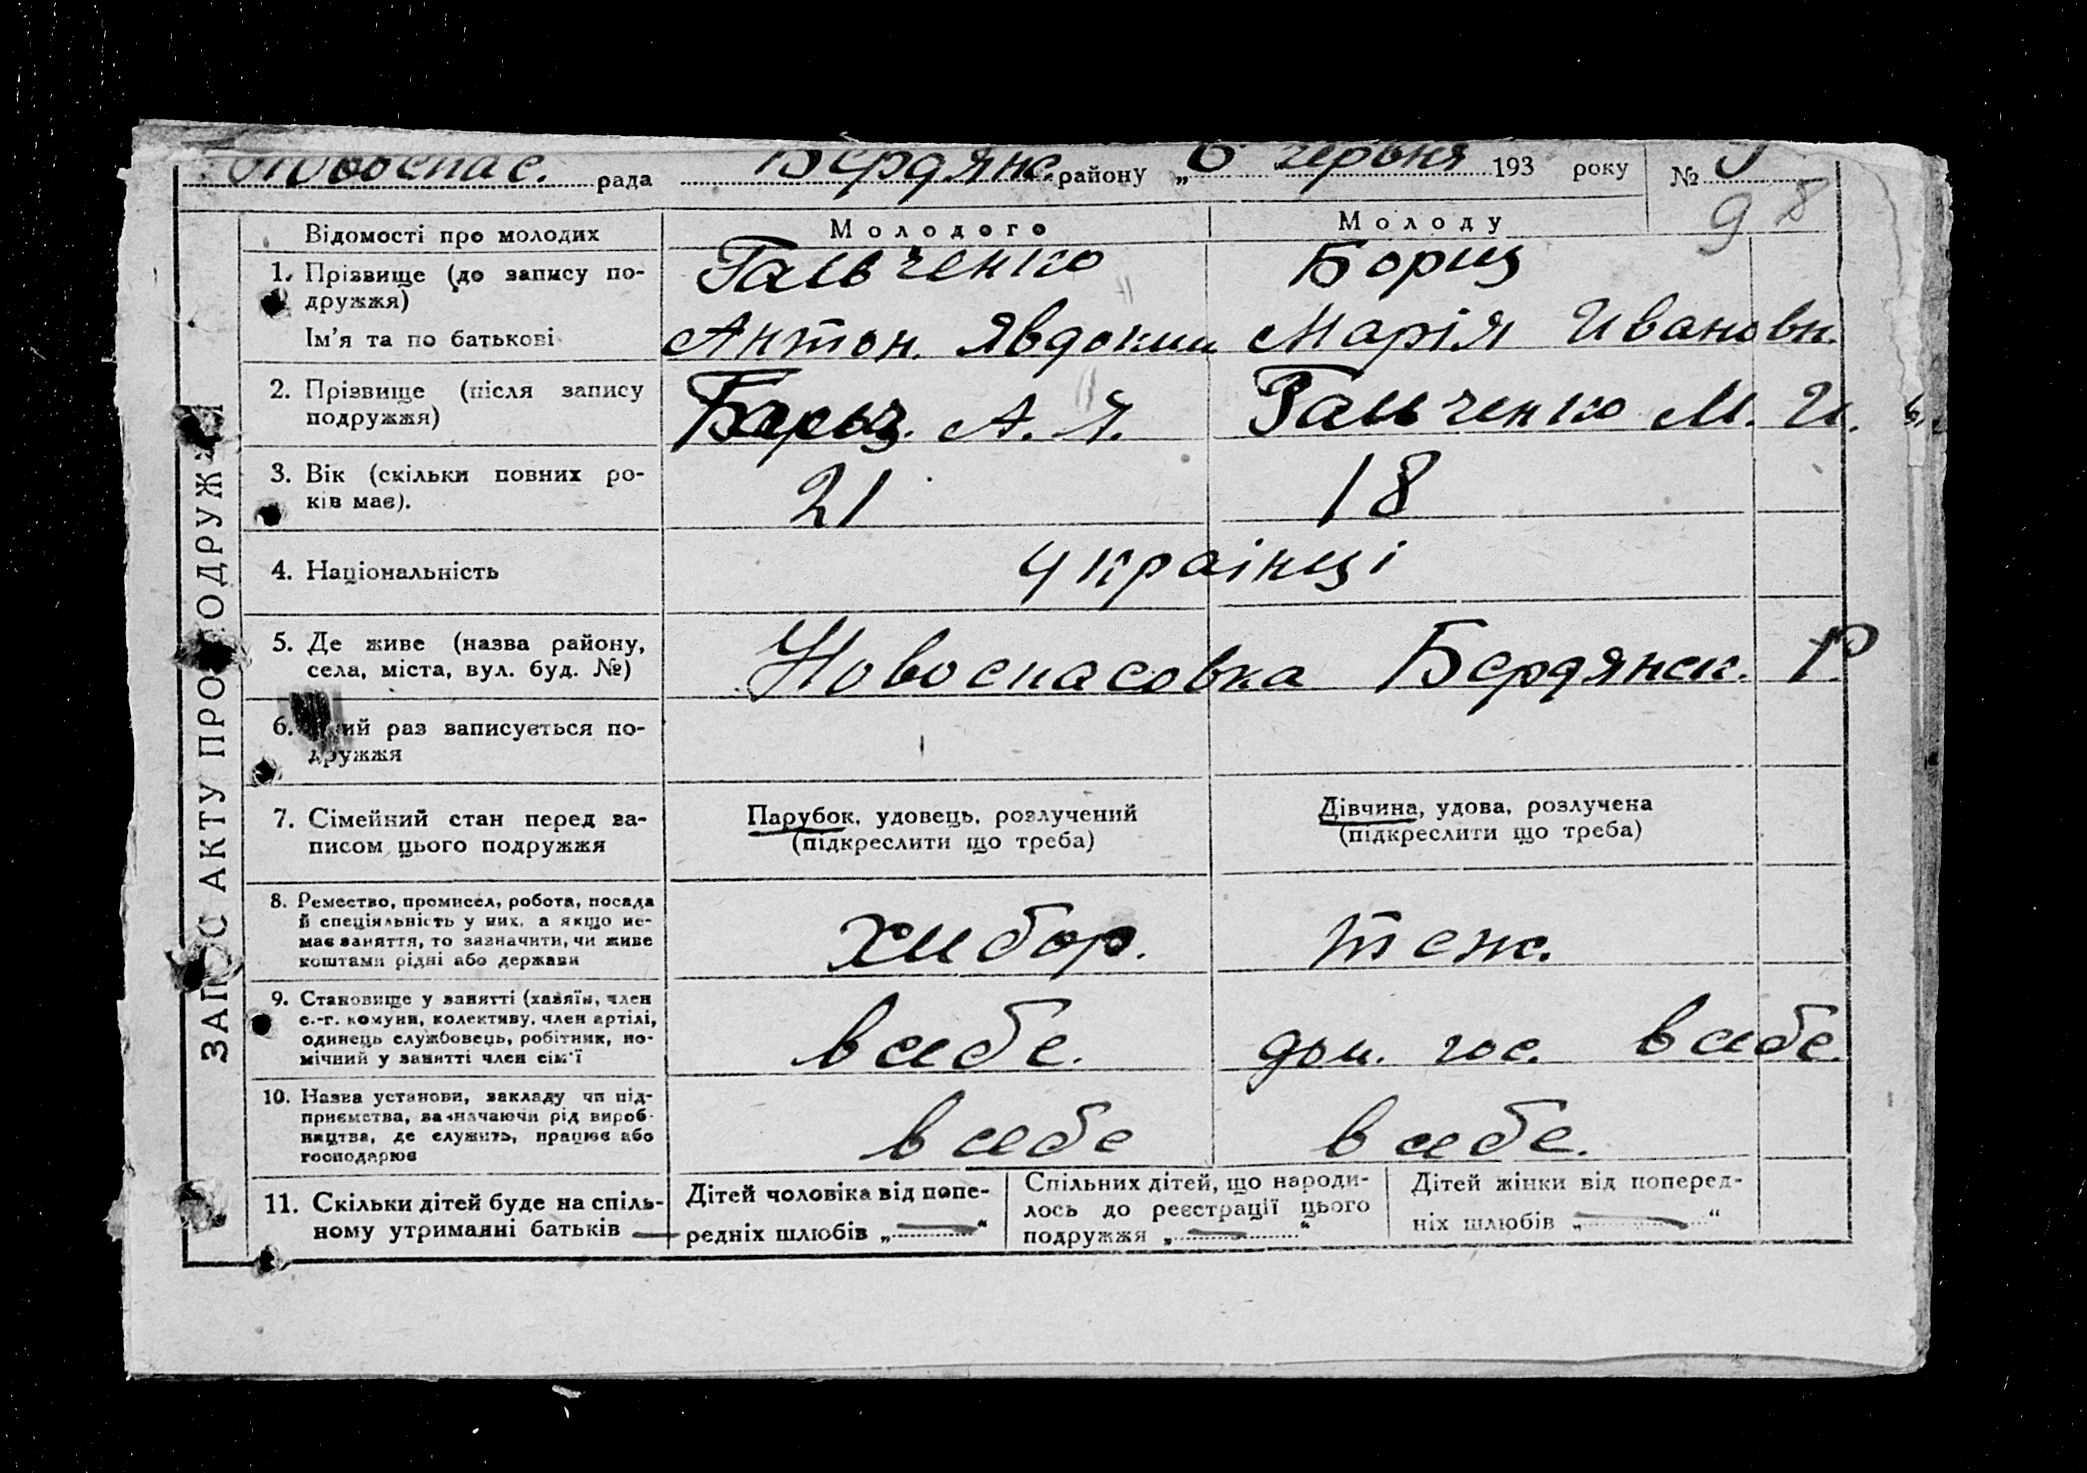 Новоспас. рада Бердянс. району „6 червня 193 року №
98
ЗАПИС АКТУ ПРО ПОДРУЖЖЯ
Відомості про молодих Молодого Молоду
1. Прізвище (до запису по-
дружжя) Гальченко Борщ
Ім'я та по батькові Антон. Явдоким Марія Ивановн.
2. Прізвище (після запису
подружжя) А. Я. Гальченко М. И.
3. Вік (скільки повних ро-
ків має). 21 18
4. Національність українці
5. Де живе (назва району,
села, міста, вул. буд. №) Новоспасовка Бердянск. Р.
6. ий раз записується по-
дружжя
7. Сімейний стан перед за-
писом цього подружжя
Парубок, удовець, розлучений
(підкреслити що треба)
Дівчина, удова, розлучена
(підкреслити що треба)
8. Ремество, промисел, робота, посада
й спеціяльність у них, а якщо не-
має заняття, то зазначити, чи живе
коштами рідні або держави
хлібор. теж.
9. Становище у занятті (хазяїн, член
с.-г. комуни, колективу, член артілі,
одинець службовець, робітник, по-
мічний у занятті член сім'ї
в себе. дом. гос. в себе.
10. Назва установи, закладу чи під-
приємства, зазначаючи рід вироб-
ництва, де служить, працює або
господарює
в себе в себе.
11. Скільки дітей буде на спіль-
ному утриманні батьків —
Дітей чоловіка від попе-
редніх шлюбів „—“
Спільних дітей, що народи-
лось до реєстрації цього
подружжя „—“
Дітей жінки від поперед-
ніх шлюбів „—“